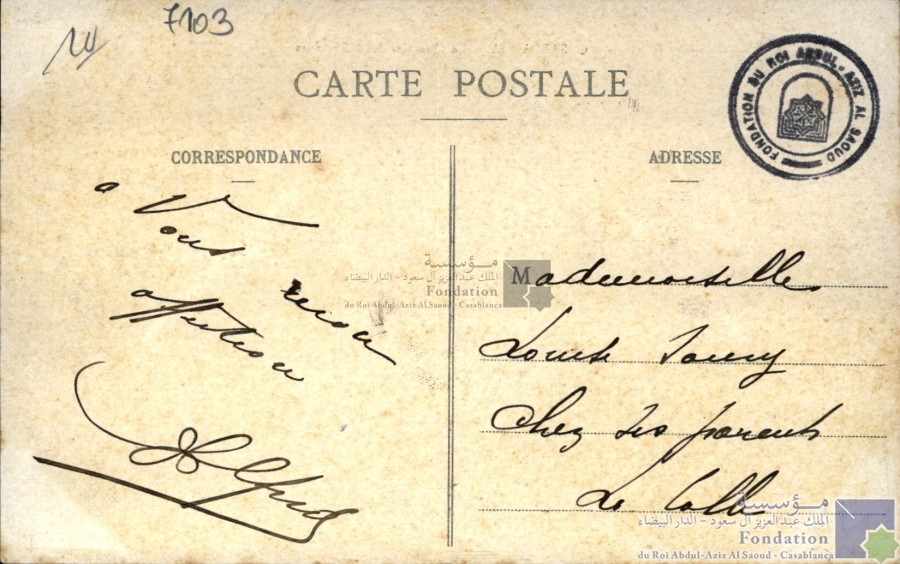 7103
CARTE POSTALE
FONDATION DU ROI ABDUL-AZIZ AL SAOUD
CORRESPONDANCE
ADRESSE
a Vous
mon
affection
Mademoiselle
Louise
Chez ses parents
La Calle
مؤسسة
الملك عبد العزيز آل سعود – الدار البيضاء
Fondation
du Roi Abdul-Aziz Al Saoud - Casablanca
مؤسسة
الملك عبد العزيز آل سعود – الدار البيضاء
Fondation
du Roi Abdul-Aziz Al Saoud - Casablanca